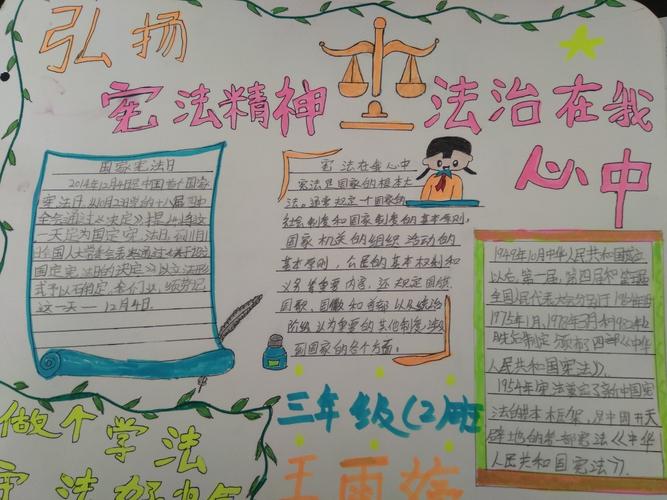 弘扬
宪法精神 法治在我
心中
国家宪法日
2014年12月4日是中国首个国家
宪法日
全会通过《决定》提
一天定为国定宪法日
国定宪法日的决定》以立法形
这一天——12月4日.
宪法在每心中
宪法是国家的根本大
法。通常规定一个国家的
社会制度和国家制度的基本原则,
国家机关的组织活动的
基本原则,公民的基本权利和
义务等重要内容,还规定国旗
国歌、国徽和首都以及统治
阶级认为重要的其他制度,涉及
到国家的各个方面.
1949年10月中华人民共和国成立
以后,第一届、第四届和第五届
全国人民代表大会分别于1954年9月
1975年1月、1978年3月和1982年12月
制定颁布四部《中华
人民共和国宪法》.
1954年宪法奠定了新中国宪
法的基本框架,是中国开天
辟地的首部宪法《中华
人民共和国宪法》.
做个学法
三年级(2)班
王雨